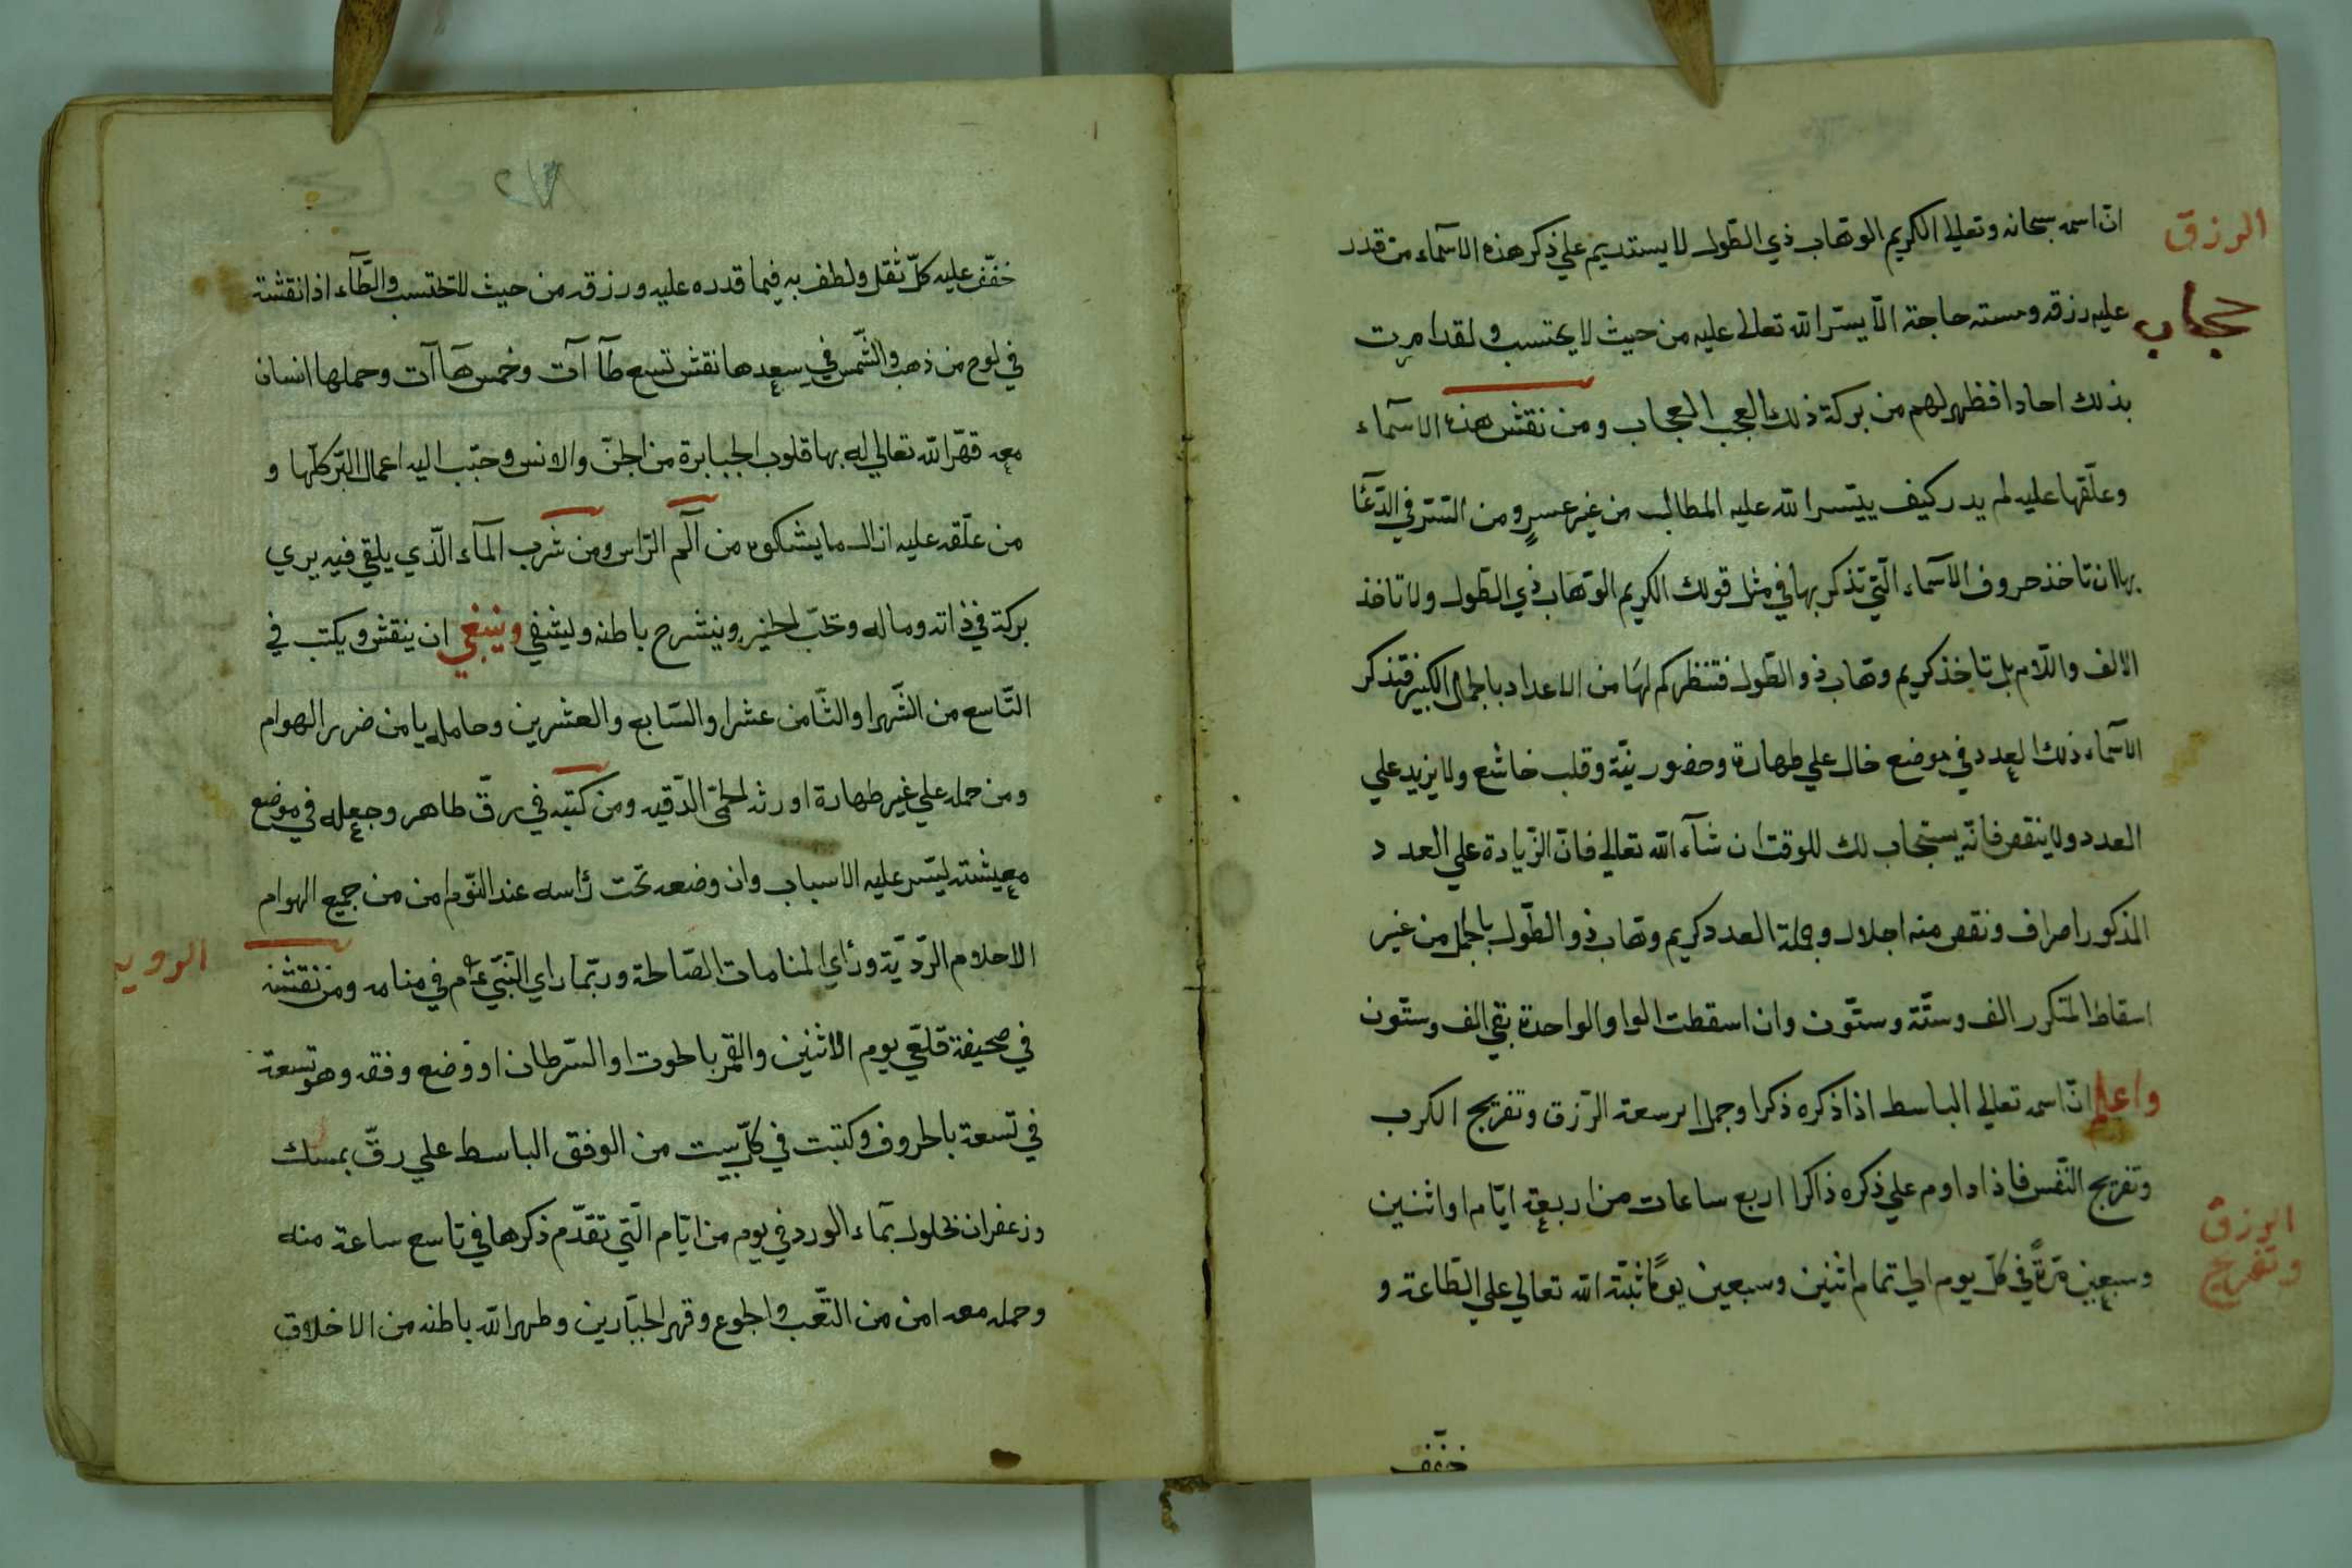 الرزق
ان اسمه سبحانه وتعالي الكريم الوهّاب ذي الطّول لا يستديم علي ذكر هذه الاسمآء من قدر
حجاب
عليه رزقه ومسته حاجة الّا يسّر الله تعالى عليه من حيث لا يحتسب ولقد امرت
بذلك احادا فظهر لهم من بركة ذلك العجب العجاب ومن نقش هذه الاسمآء
وعلّقها عليه لم يدر كيف ييتسر الله عليه المطالب من غير عسرٍ ومن السّرّ في الدّعآ
بها ان تاخذ حروف الاسمآء الّتي تذكر بها في مثل قولك الكريم الوهّاب ذي الطّول ولا تاخذ
الالف واللّام بل تاخذ كريم وهّاب ذو الطّول فتنظر كم لها من الاعداد بالجمال الكبير فتذكر
الاسمآء ذلك العدد في موضع خال علي طهارة وحضور نيّة وقلب خاشع ولا يزيد علي
العدد ولا ينقص فانّه يستجاب لك للوقت ان شآء الله تعالي فانّ الزّيادة علي العدد
المذكور اصراف ونقص منه اجلال وجملة العدد كريم وهّاب ذو الطّول بالجمل من غير
اسقاط المتكرر الف وستّة وستّون وان اسقطت الواو الواحدة بقي الف وستّون
واعلم انّ اسمه تعالي الباسط اذا ذكره ذكرا وجملا يرسعة الرّزق وتفريج الكرب
وتفريج النّفس فاذا داوم علي ذكره ذاكرا اربع ساعات من اربعة ايّام او اثنين
الرزق
وتفريج
وسبعين مّرةً في كلّ يوم الي تمام اثنين وسبعين يومًا ثبّته الله تعالي علي الطّاعة و
خفّف
خفّف عليه كلّ ثقل ولطف به فيما قدره عليه ورزقه من حيث لا يحتسب والطّآء اذا نقشته
في لوح من ذهب والشّمس في سعدها نقش تسع طآآت وخمس هآآت وحملها انسان
معه قهّر الله تعالي له بها قلوب الجبابرة من الجنّ والانس وحبّب اليه اعمال البّر كلّها و
من علّقه عليه ازال ما يشكوه من آلم الرّاس ومن شرب المآء الّذي يلقي فيه يري
بركة في ذاته وماله وحبّ الخير وينشرح باطنه وليشفي وينبغي ان ينقش ويكتب في
التّاسع من الشّهر او الثّامن عشر او السّابع والعشرين وحامله يامن ضرر الهوام
ومن حمله علي غير طهارة اورثه الحمّى الدّقيه ومن كتبه في رقّ طاهر وجعله في موضع
معيشته ليّسر عليه الاسباب وان وضعه تحت رأسه عند النّوم امن من جميع الهوام
الرويه
الاحلام الرّديّة ورأي المنامات الصّالحة وربّما راي النّبيّ عم في منامه ومن نقشه
في صحيفة قلعّي يوم الاثنين والقمر بالحوت او السّرطان او وضع وفقه وهو تسعة
في تسعة بالحروف وكتبت في كلّ بيت من الوفق الباسط علي رقّ بمسك
وزعفران محلول بمآء الورد في يوم من ايّام الّتي تقدّم ذكرها في تاسع ساعة منه
وحمله معه امن من التّعب والجوع وقهر الجبّارين وطهر الله باطنه من الاخلاق